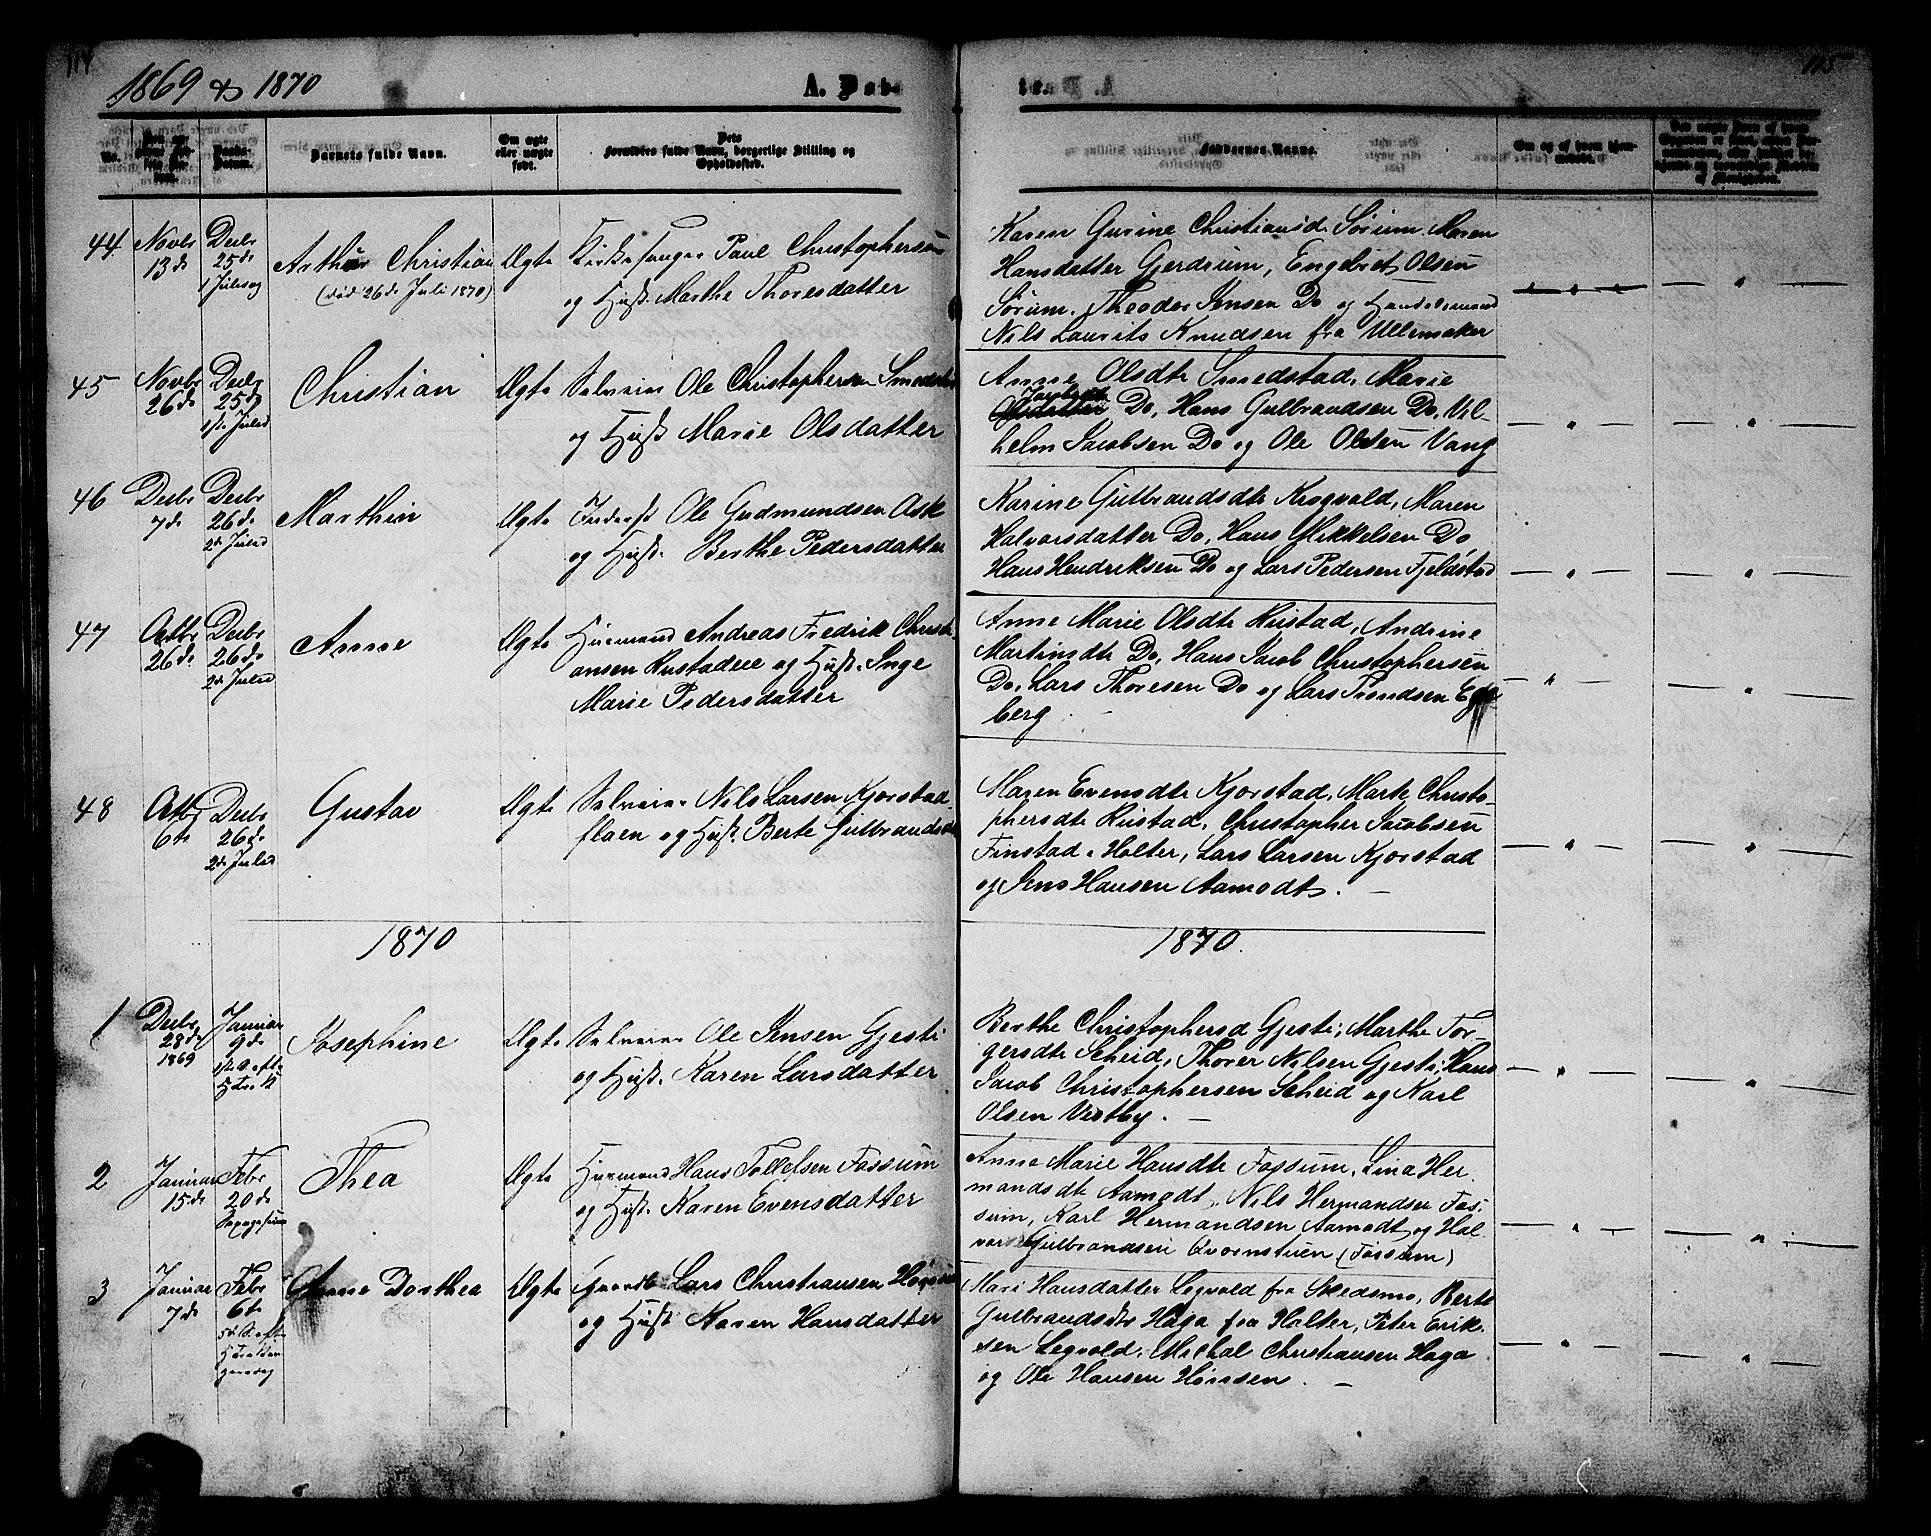 114
1869 & 1870
A. Døb-
No.
Barnets fulde Navn.
Om ægte eller uægte født.
Forældres fulde Navn, borgerlige Stilling og Opholdssted.
44. Novbr 13de
Decbr 25de 1 Juledag
Arthur Christian
(død 26de Juli 1870)
Ægte
Kirkesanger Paul Christophersen
og Hust. Marthe Thoresdatter
45 Novbr 26de
Decbr 25de 1ste Juled
Christian
Ægte
Selveier Ole Christophersen Smedstad
og Hust Marie Olsdatter
46 Decbr 7de
Decbr 26de 2de Juled
Marthin
Ægte
Inderst Ole Gudmundsen Ask
og Hust. Berthe Pedersdatter
47 Octbr 26de
Decbr 26de 2de Juled
Anne
Ægte
Husmand Andreas Fredrik Christi-
ansen Rustadeie og Hust. Inge
Marie Pedersdatter
48 Octbr 6te
Decbr 26de 2de Juled
Gustav
Ægte
Selveier Nils Larsen Kjorstad
floen og Hust. Berte Gulbrandsdt
1870
1 Decbr 28de 1869
Januar 9de
Josephine
Ægte
Selveier Ole Jensen Gjesti
og Hust. Karen Larsdatter
2 Januar 15de
Febr 20de
Thea
Ægte
Husmand Hans Tollefsen Fossum
og Hust. Karen Evensdatter
3 Januar 7de
Febr 6te
Anne Dorthea
Ægte
Gaardb Lars Christiansen
og Hust Karen Hansdatter
115
te.
Faddernes Navne.
Karen Gurine Christiansd. Sørum, Maren
Hansdatter Gjerdrum, Engebret Olsen
Sørum. Theodor Jensen Do og Handelsmand
Nils Laurits Knudsen fra Ullensaker
Anne Olsdtr Smedstad, Marie
Jacobsdt Do, Hans Gulbrandsen Do, Vil-
helm Jacobsen Do og Ole Olsen Vang
Karine Gulbrandsdtr Krogvold, Maren
Halvorsdatter Do, Hans Mikkelsen Do
Hans Hendriksen Do og Lars Pedersen Fjeldstad
Anne Marie Olsdtr Rustad, Andrine
Martinsdtr Do, Hans Jacob Christophersen
Do, Lars Thoresen Do og Lars Trondsen Ege
berg.
Maren Evensdtr Kjorstad, Marte Christo-
phersdtr Rustad, Christopher Jacobsen
Finstad i Holter, Lars Larsen Kjorstad
og Jens Hansen Aamodt.
1870.
Berthe Christophersd Gjesti, Marthe Tor-
gersdtr Scheid, Thorer Nilsen Gjesti, Hans
Jacob Christophersen Scheid og Karl
Olsen Vestby.
Anne Marie Hansdtr Fossum, Lina Her
mandsdtr Aamodt, Nils Hermandsen Fos-
sum, Karl Hermandsen Aamodt og Hal-
vor Gulbrandsen Qvernstuen (Fossum)
Mari Hansdatter Legvold fra Skedsmo, Berte
Gulbrandsdtr Haga fra Holter, Peter Erik-
sen Legvold. Michal Christiansen Haga
og Ole Hansen Hønsen.